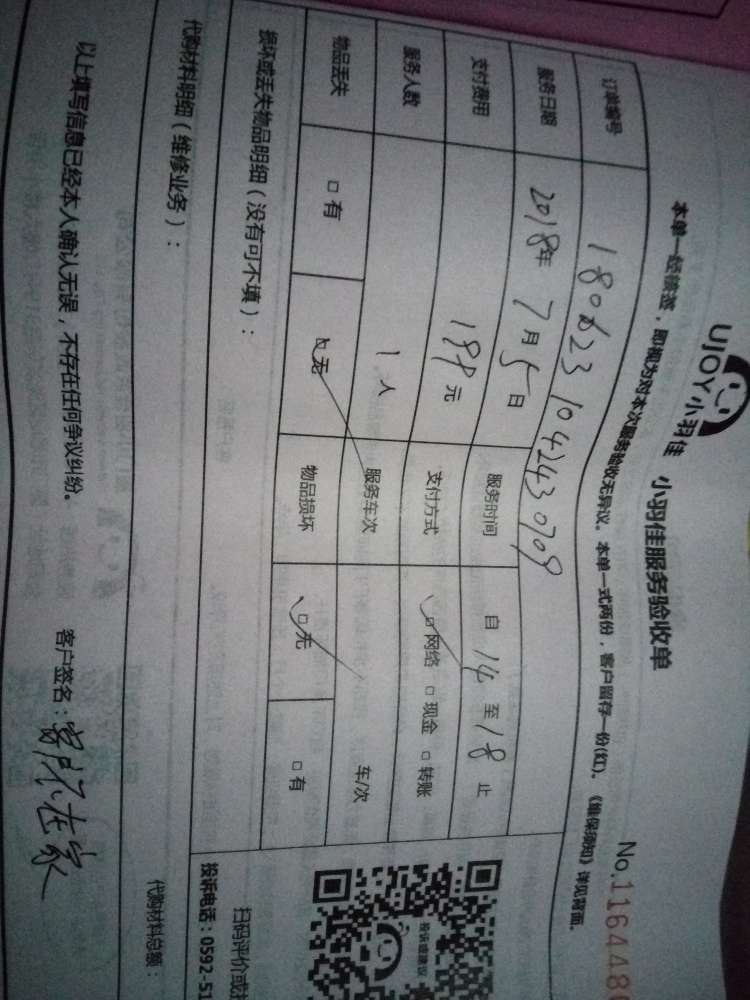 UJOY小羽佳 小羽佳服务验收单
No.116448
本单一经签签，即视为对本次服务验收无异议。本单一式两份，客户留存一份(红)。《维保须知》详见背面。
订单编号 1806231042430709
服务日期 2018年 7月5日 服务时间 自 14 至 18 止
支付费用 199元 支付方式 □网络 □现金 □转账
服务人数 1人 服务车次 车/次
物品丢失 □有 □无 物品损坏 □无 □有
损坏或丢失物品明细（没有可不填）：
代购材料明细（维修业务）：
代购材料总额：
以上填写信息已经本人确认无误，不存在任何争议纠纷。
客户签名：客户不在家
投诉或建议
扫码评价或
投诉电话：0592-51